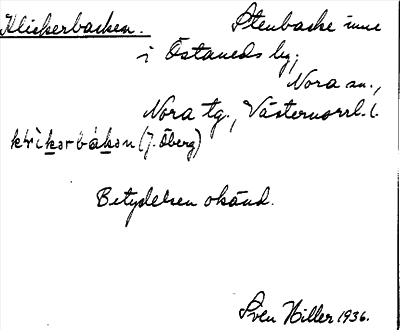 Klickerbacken. Stenbacke inne
i Östaneds by,
Nora sn.,
Nora tg., Västernorrl. l.
(J. Öberg)
Betydelsen okänd.
Sven Hiller 1936.